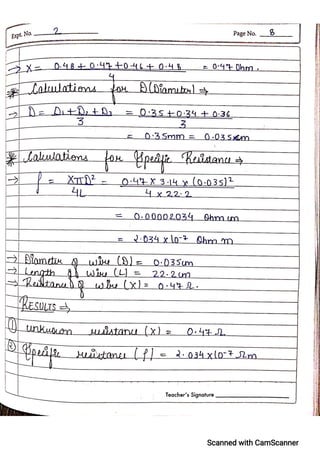 Expt. No. 2 Page No. 8
→ X = 0.48 + 0.47 + 0.46 + 0.48 = 0.47 Ohm.
4
* Calculations for D (Diameter) ⇒
→ D = D₁ + D₂ + D₃ = 0.35 + 0.34 + 0.36
3 3
= 0.35mm = 0.035cm
* Calculations for Specific Resistance ⇒
→ ρ = XπD² = 0.47 X 3.14 X (0.035)²
4L 4 x 22.2
= 0.00002034 Ohm cm
= 2.034 x 10⁻⁷ Ohm m
→ Diameter of wire (D) = 0.035cm
→ Length of wire (L) = 22.2cm
→ Resistance of wire (X) = 0.47 Ω.
RESULTS ⇒
① unknown resistance (X) = 0.47 Ω
② Specific resistance (ρ) = 2.034 x 10⁻⁷ Ωm
Teacher's Signature
Scanned with CamScanner